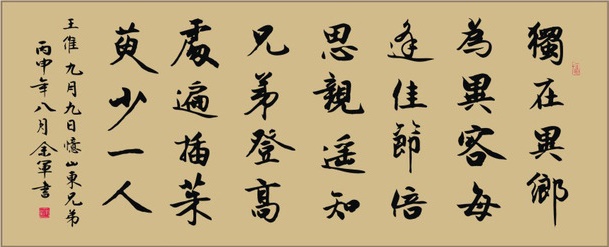 獨在異鄉
為異客每
逢佳節倍
思親遥知
兄弟登高
處遍插茱
萸少一人
王維九月九日憶山東兄弟
丙申年八月余軍書